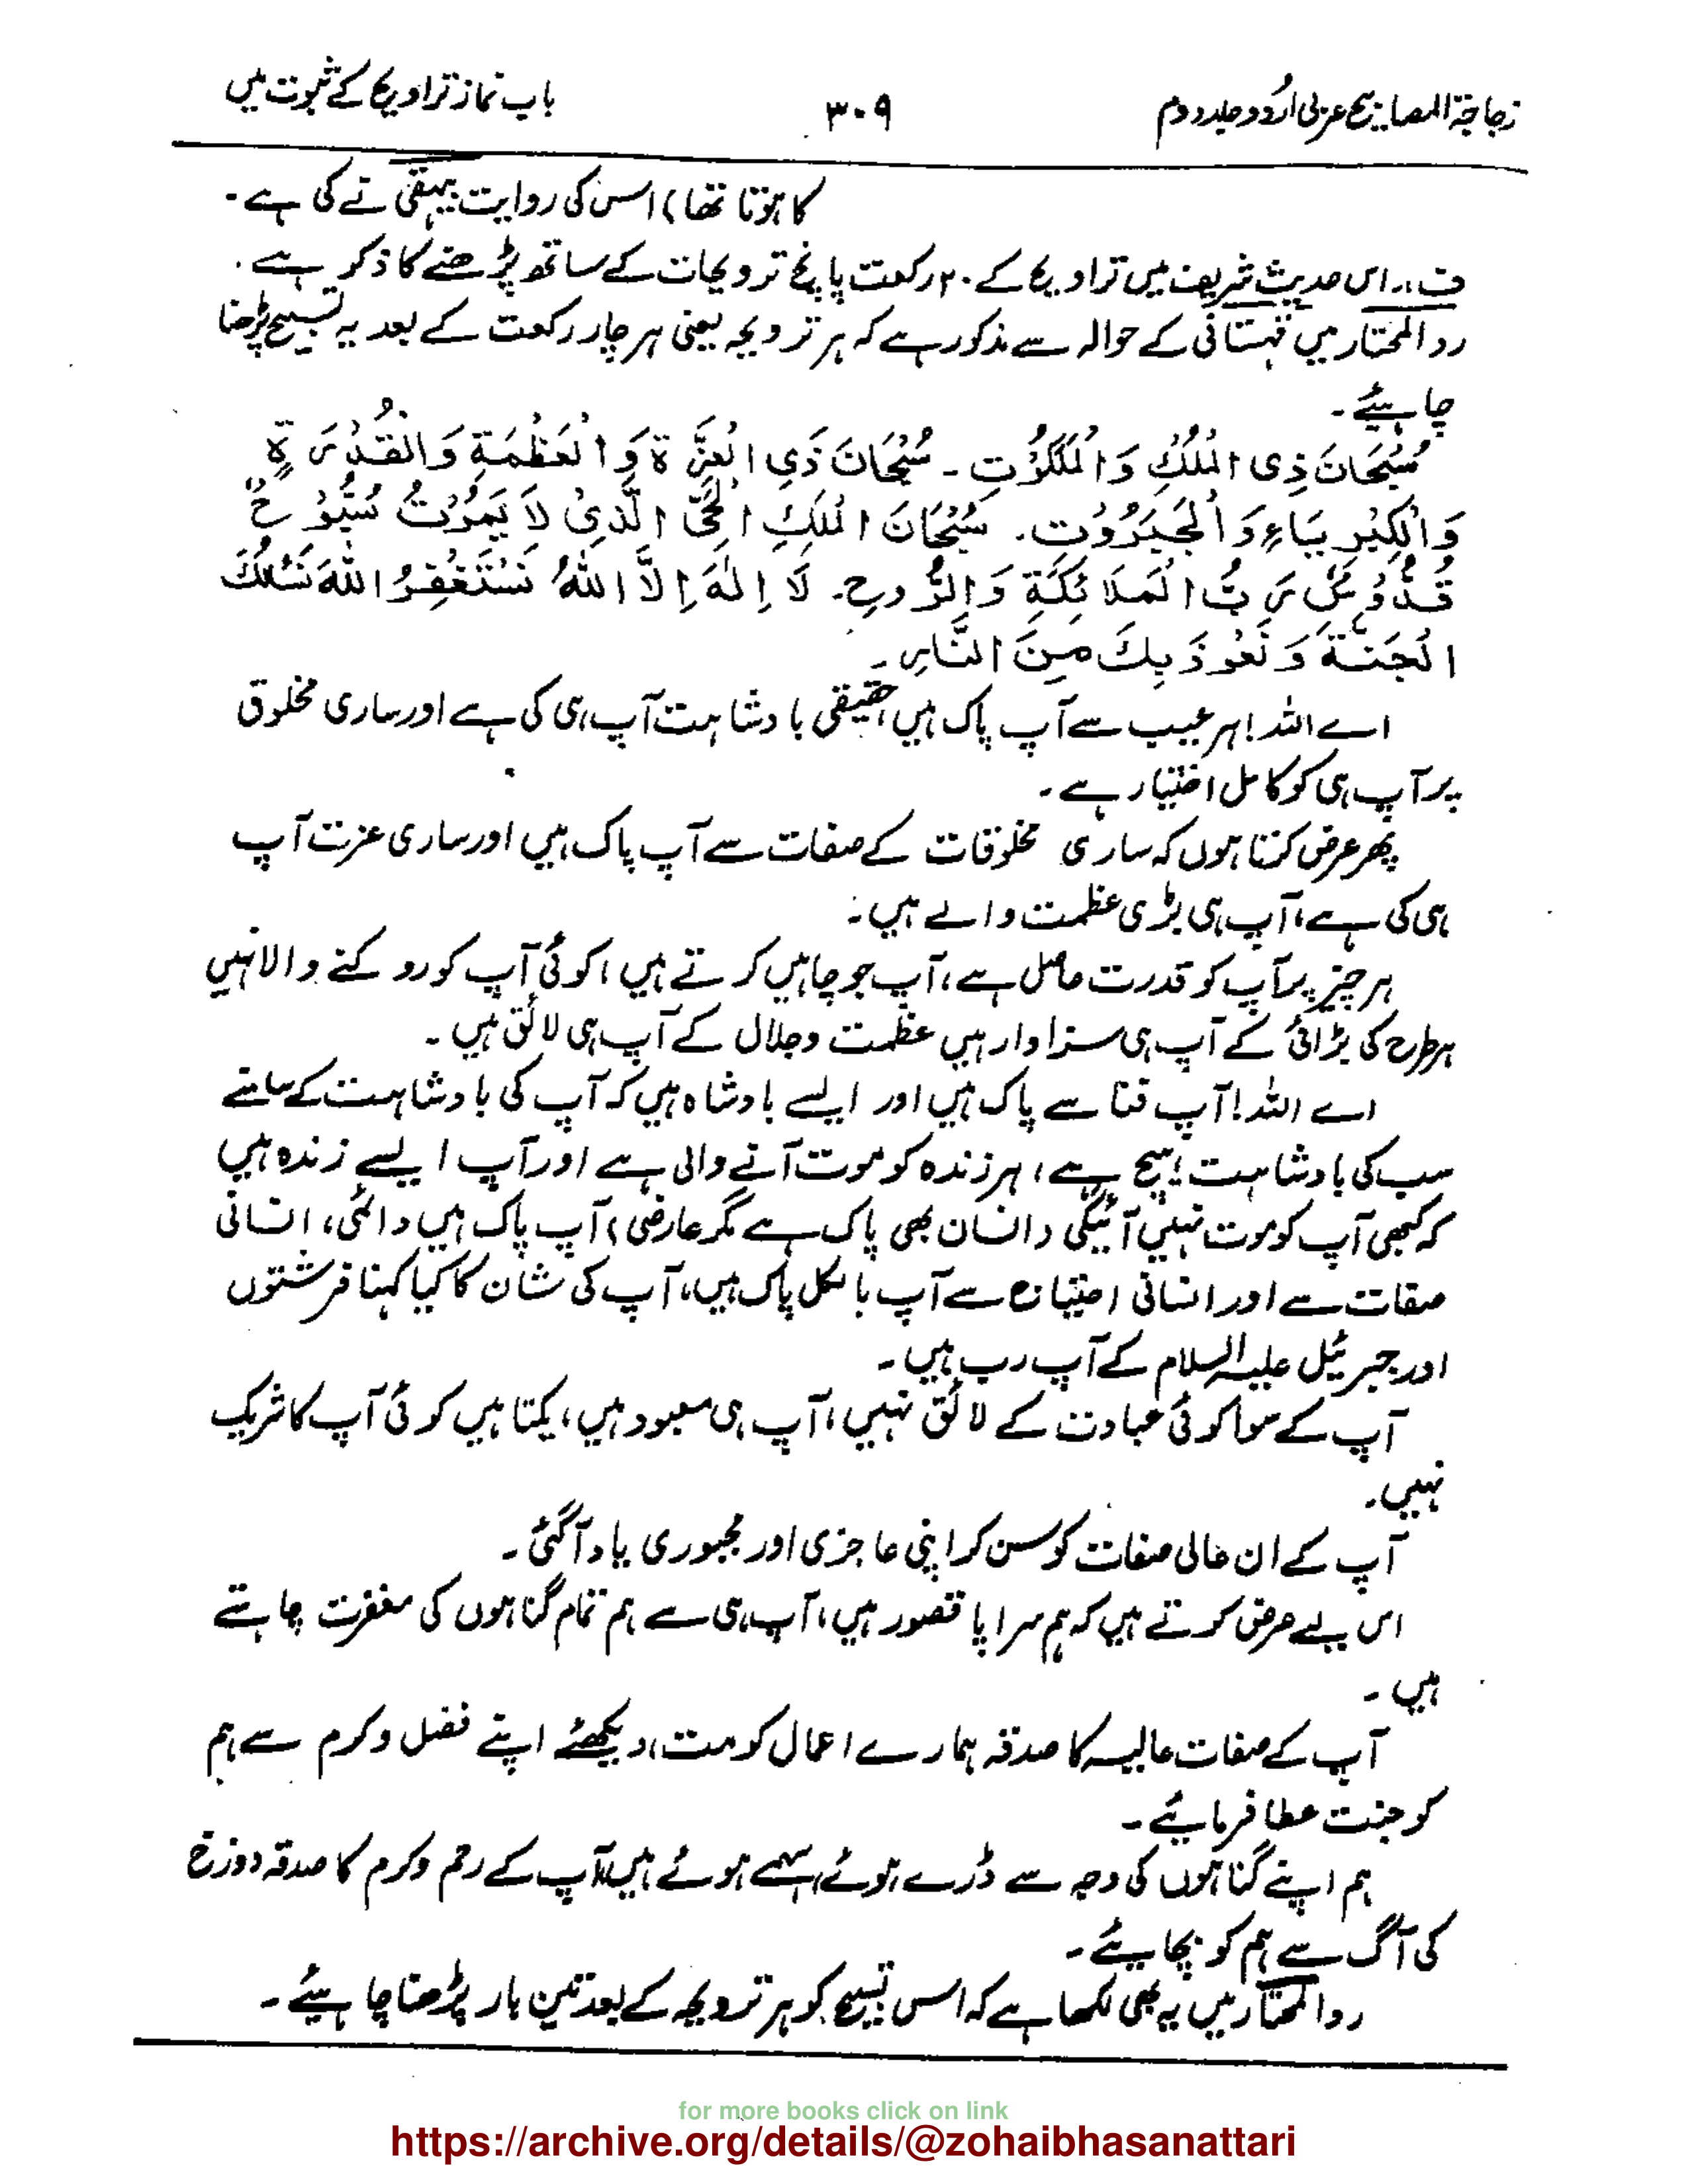 زجاجۃ المصابیح عربی اُردو جلد دوم ۳۰۹ باب نماز تراویح کے ثبوت میں
کا ہوتا تھا) اس کی روایت بیہقی نے کی ہے۔
ف:۔ اس حدیث شریف میں تراویح کے ۲۰ رکعت پانچ ترویحات کے ساتھ پڑھنے کا ذکر ہے۔
رد المحتار میں قہستانی کے حوالہ سے مذکور ہے کہ ہر ترویحہ یعنی ہر چار رکعت کے بعد یہ تسبیح پڑھنا
چاہیئے۔
سُبْحَانَ ذِی الْمُلْكِ وَالْمَلَكُوْتِ۔ سُبْحَانَ ذِی الْعِزَّةِ وَالْعَظْمَةِ وَالْقُدْرَةِ
وَالْكِبْرِيَاءِ وَالْجَبَرُوْتِ۔ سُبْحَانَ الْمَلِكِ الْحَيِّ الَّذِیْ لَا يَمُوْتُ سُبُّوْحٌ
قُدُّوْسٌ رَبُّ الْمَلَائِكَةِ وَالرُّوحِ۔ لَا اِلٰهَ اِلَّا اللّٰهُ نَسْتَغْفِرُ اللّٰهَ نَسْئَلُكَ
الْجَنَّةَ وَنَعُوْذُ بِكَ مِنَ النَّارِ۔
اے اللہ! ہر عیب سے آپ پاک ہیں حقیقی بادشاہت آپ ہی کی ہے اور ساری مخلوق
پر آپ ہی کو کامل اختیار ہے۔
پھر عرض کرتا ہوں کہ ساری مخلوقات کے صفات سے آپ پاک ہیں اور ساری عزت آپ
ہی کی ہے، آپ ہی بڑی عظمت والے ہیں۔
ہر چیز پر آپ کو قدرت حاصل ہے، آپ جو چاہیں کرتے ہیں، کوئی آپ کو روکنے والا نہیں
ہر طرح کی بڑائی کے آپ ہی سزاوار ہیں عظمت وجلال کے آپ ہی لائق ہیں۔
اے اللہ! آپ فنا سے پاک ہیں اور ایسے بادشاہ ہیں کہ آپ کی بادشاہت کے سامنے
سب کی بادشاہت ہیچ ہے، ہر زندہ کو موت آنے والی ہے اور آپ ایسے زندہ ہیں
کہ کبھی آپ کو موت نہیں آئیگی (انسان بھی پاک ہے مگر عارضی) آپ پاک ہیں دائمی، انسانی
صفات سے اور انسانی احتیاج سے آپ بالکل پاک ہیں، آپ کی شان کا کیا کہنا فرشتوں
اور جبرئیل علیہ السلام کے آپ رب ہیں۔
آپ کے سوا کوئی عبادت کے لائق نہیں، آپ ہی معبود ہیں، یکتا ہیں کوئی آپ کا شریک
نہیں۔
آپ کے ان عالی صفات کو سن کر اپنی عاجزی اور مجبوری یاد آگئی۔
اس لیے عرض کرتے ہیں کہ ہم سراپا قصور ہیں، آپ ہی سے ہم تمام گناہوں کی مغفرت چاہتے
ہیں۔
آپ کے صفات عالیہ کا صدقہ ہمارے اعمال کو مت دیکھئے اپنے فضل وکرم سے ہم
کو جنت عطا فرمایئے۔
ہم اپنے گناہوں کی وجہ سے ڈرے ہوئے، سہمے ہوئے ہیں، آپ کے رحم وکرم کا صدقہ دوزخ
کی آگ سے ہم کو بچایئے۔
رد المحتار میں یہ بھی لکھا ہے کہ اس تسبیح کو ہر ترویحہ کے بعد تین بار پڑھنا چاہیئے۔
for more books click on link
https://archive.org/details/@zohaibhasanattari